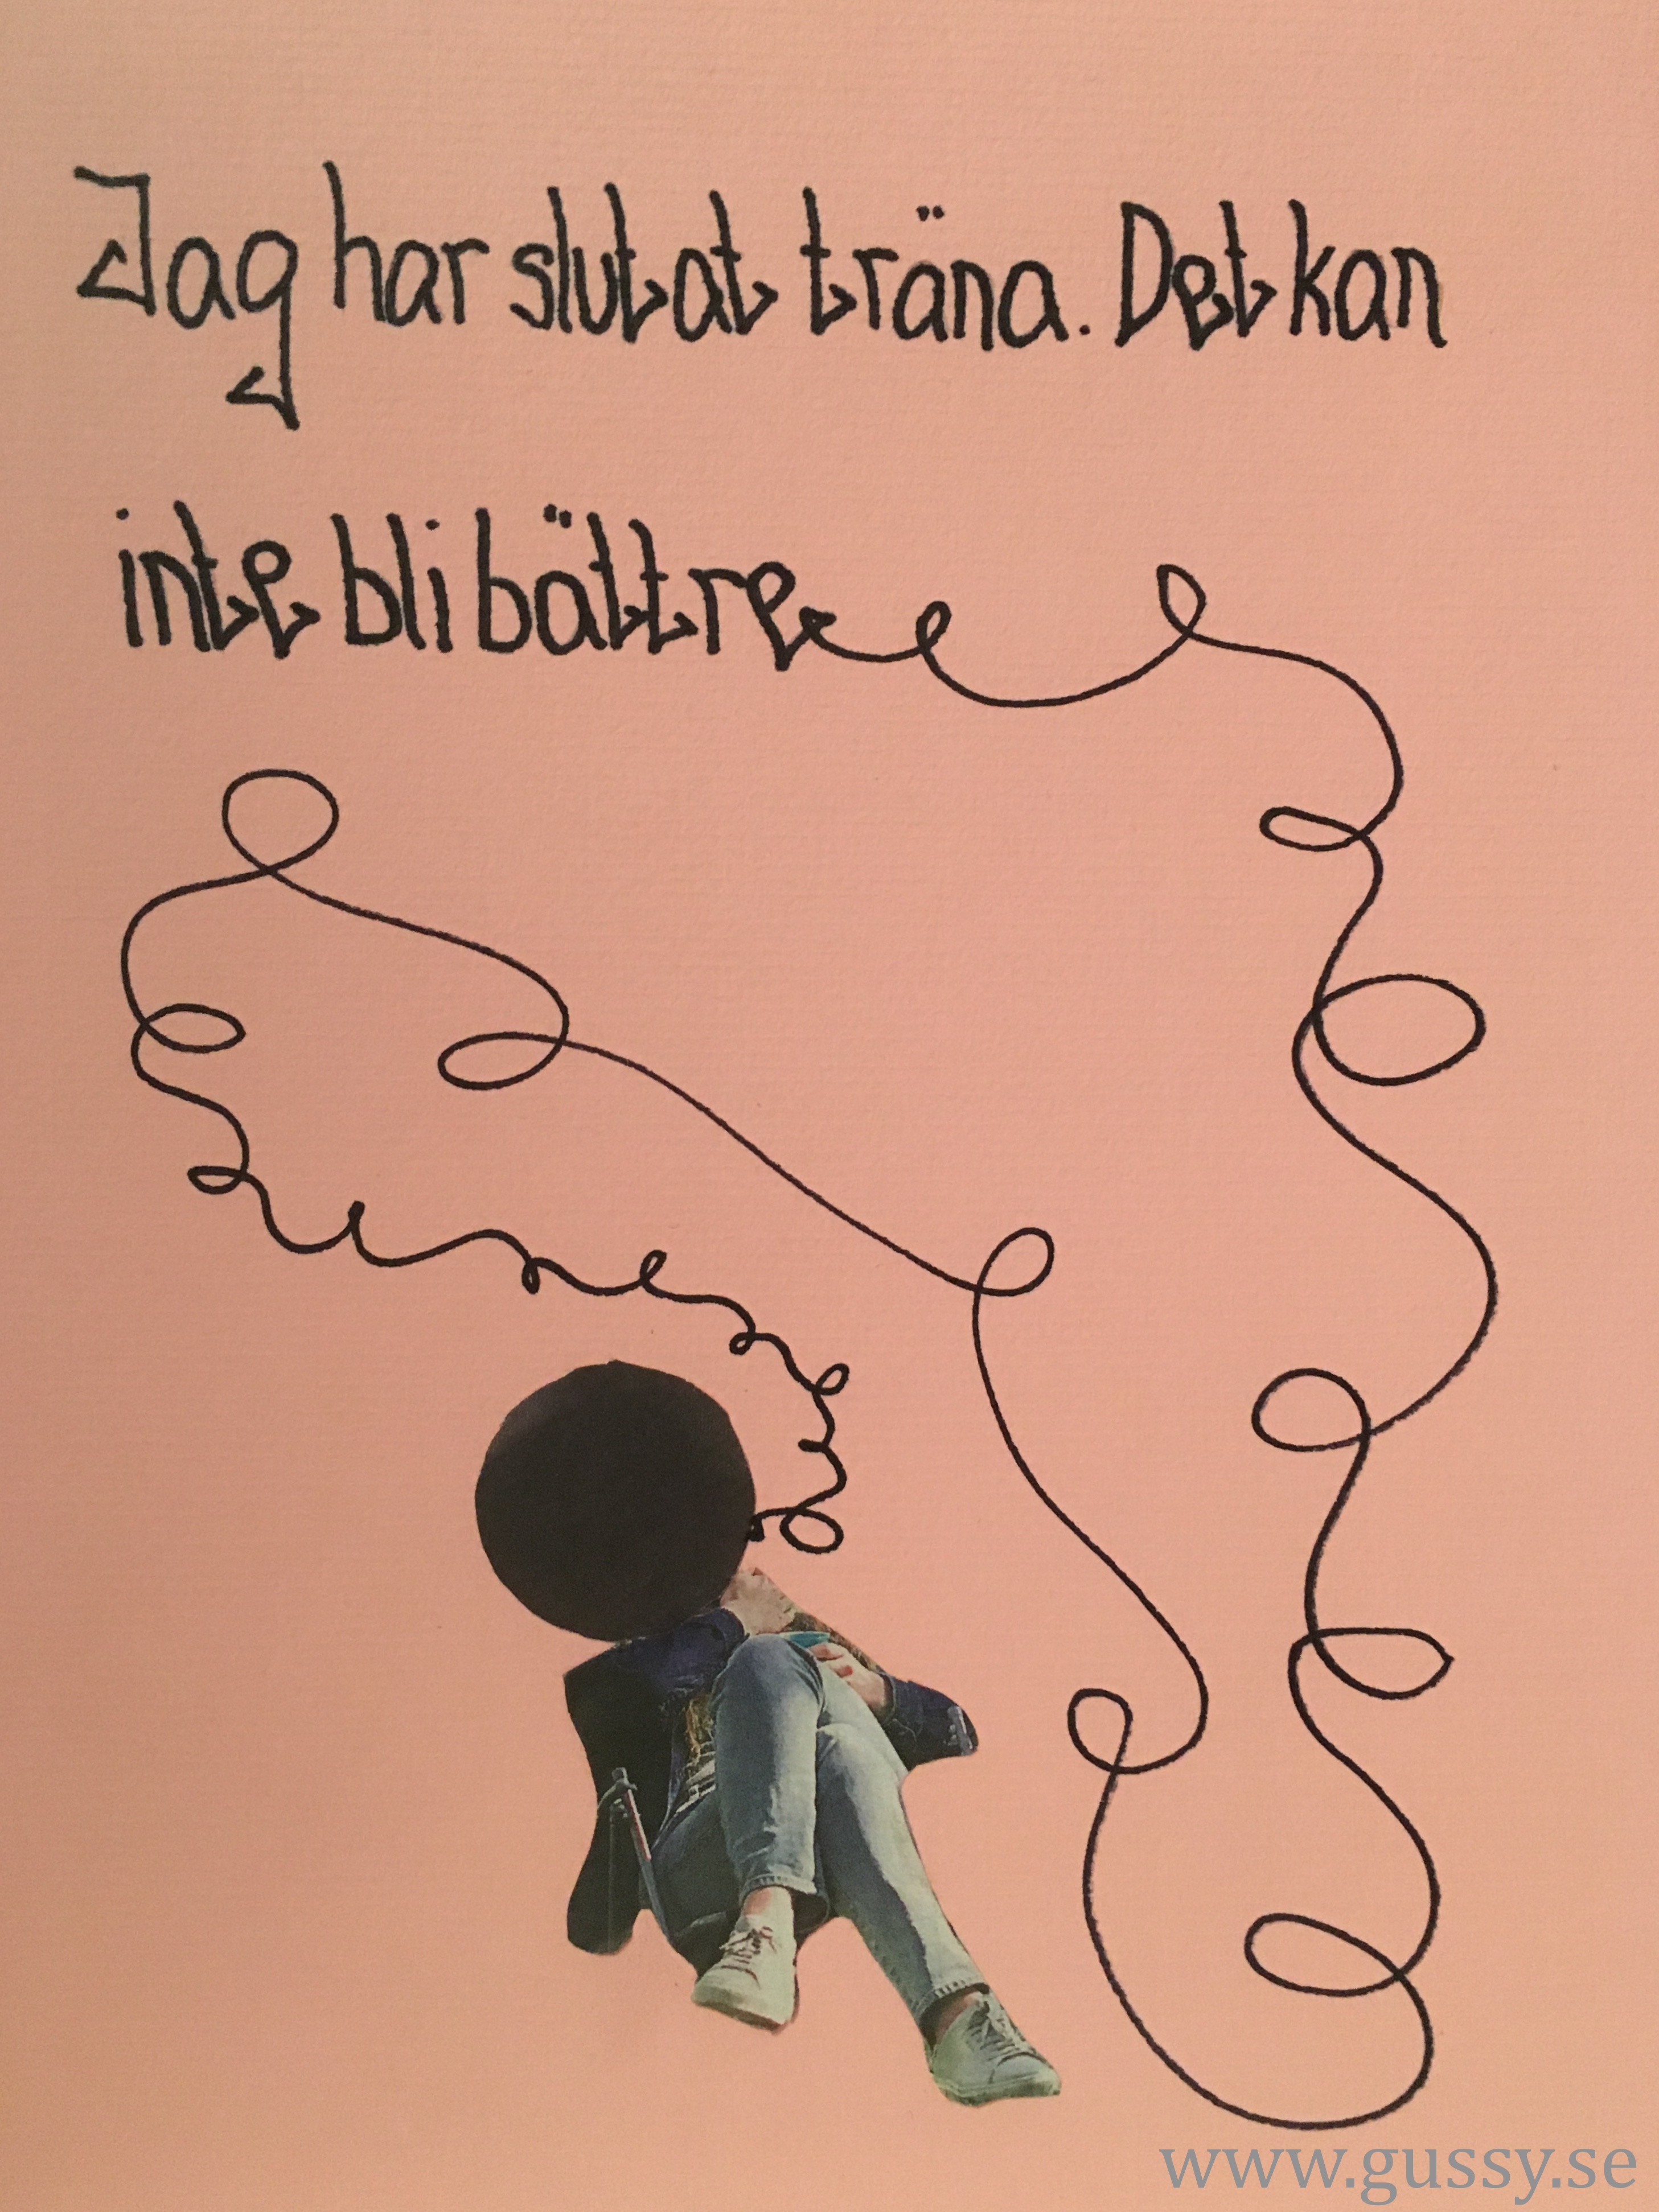 Jag har slutat träna. Det kan
inte bli bättre
www.gussy.se